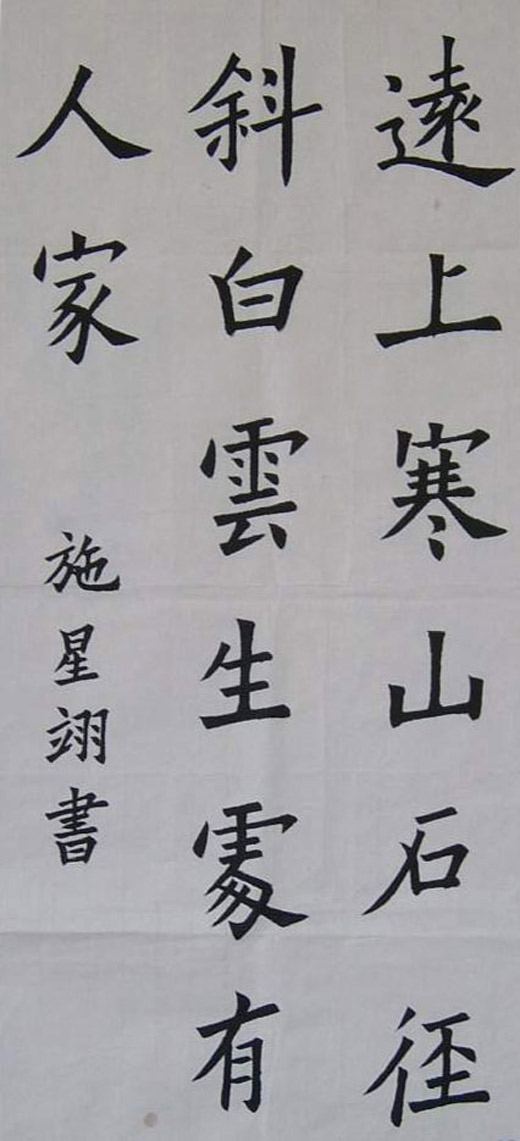 遠上寒山石径
斜白雲生處有
人家
施星翊書